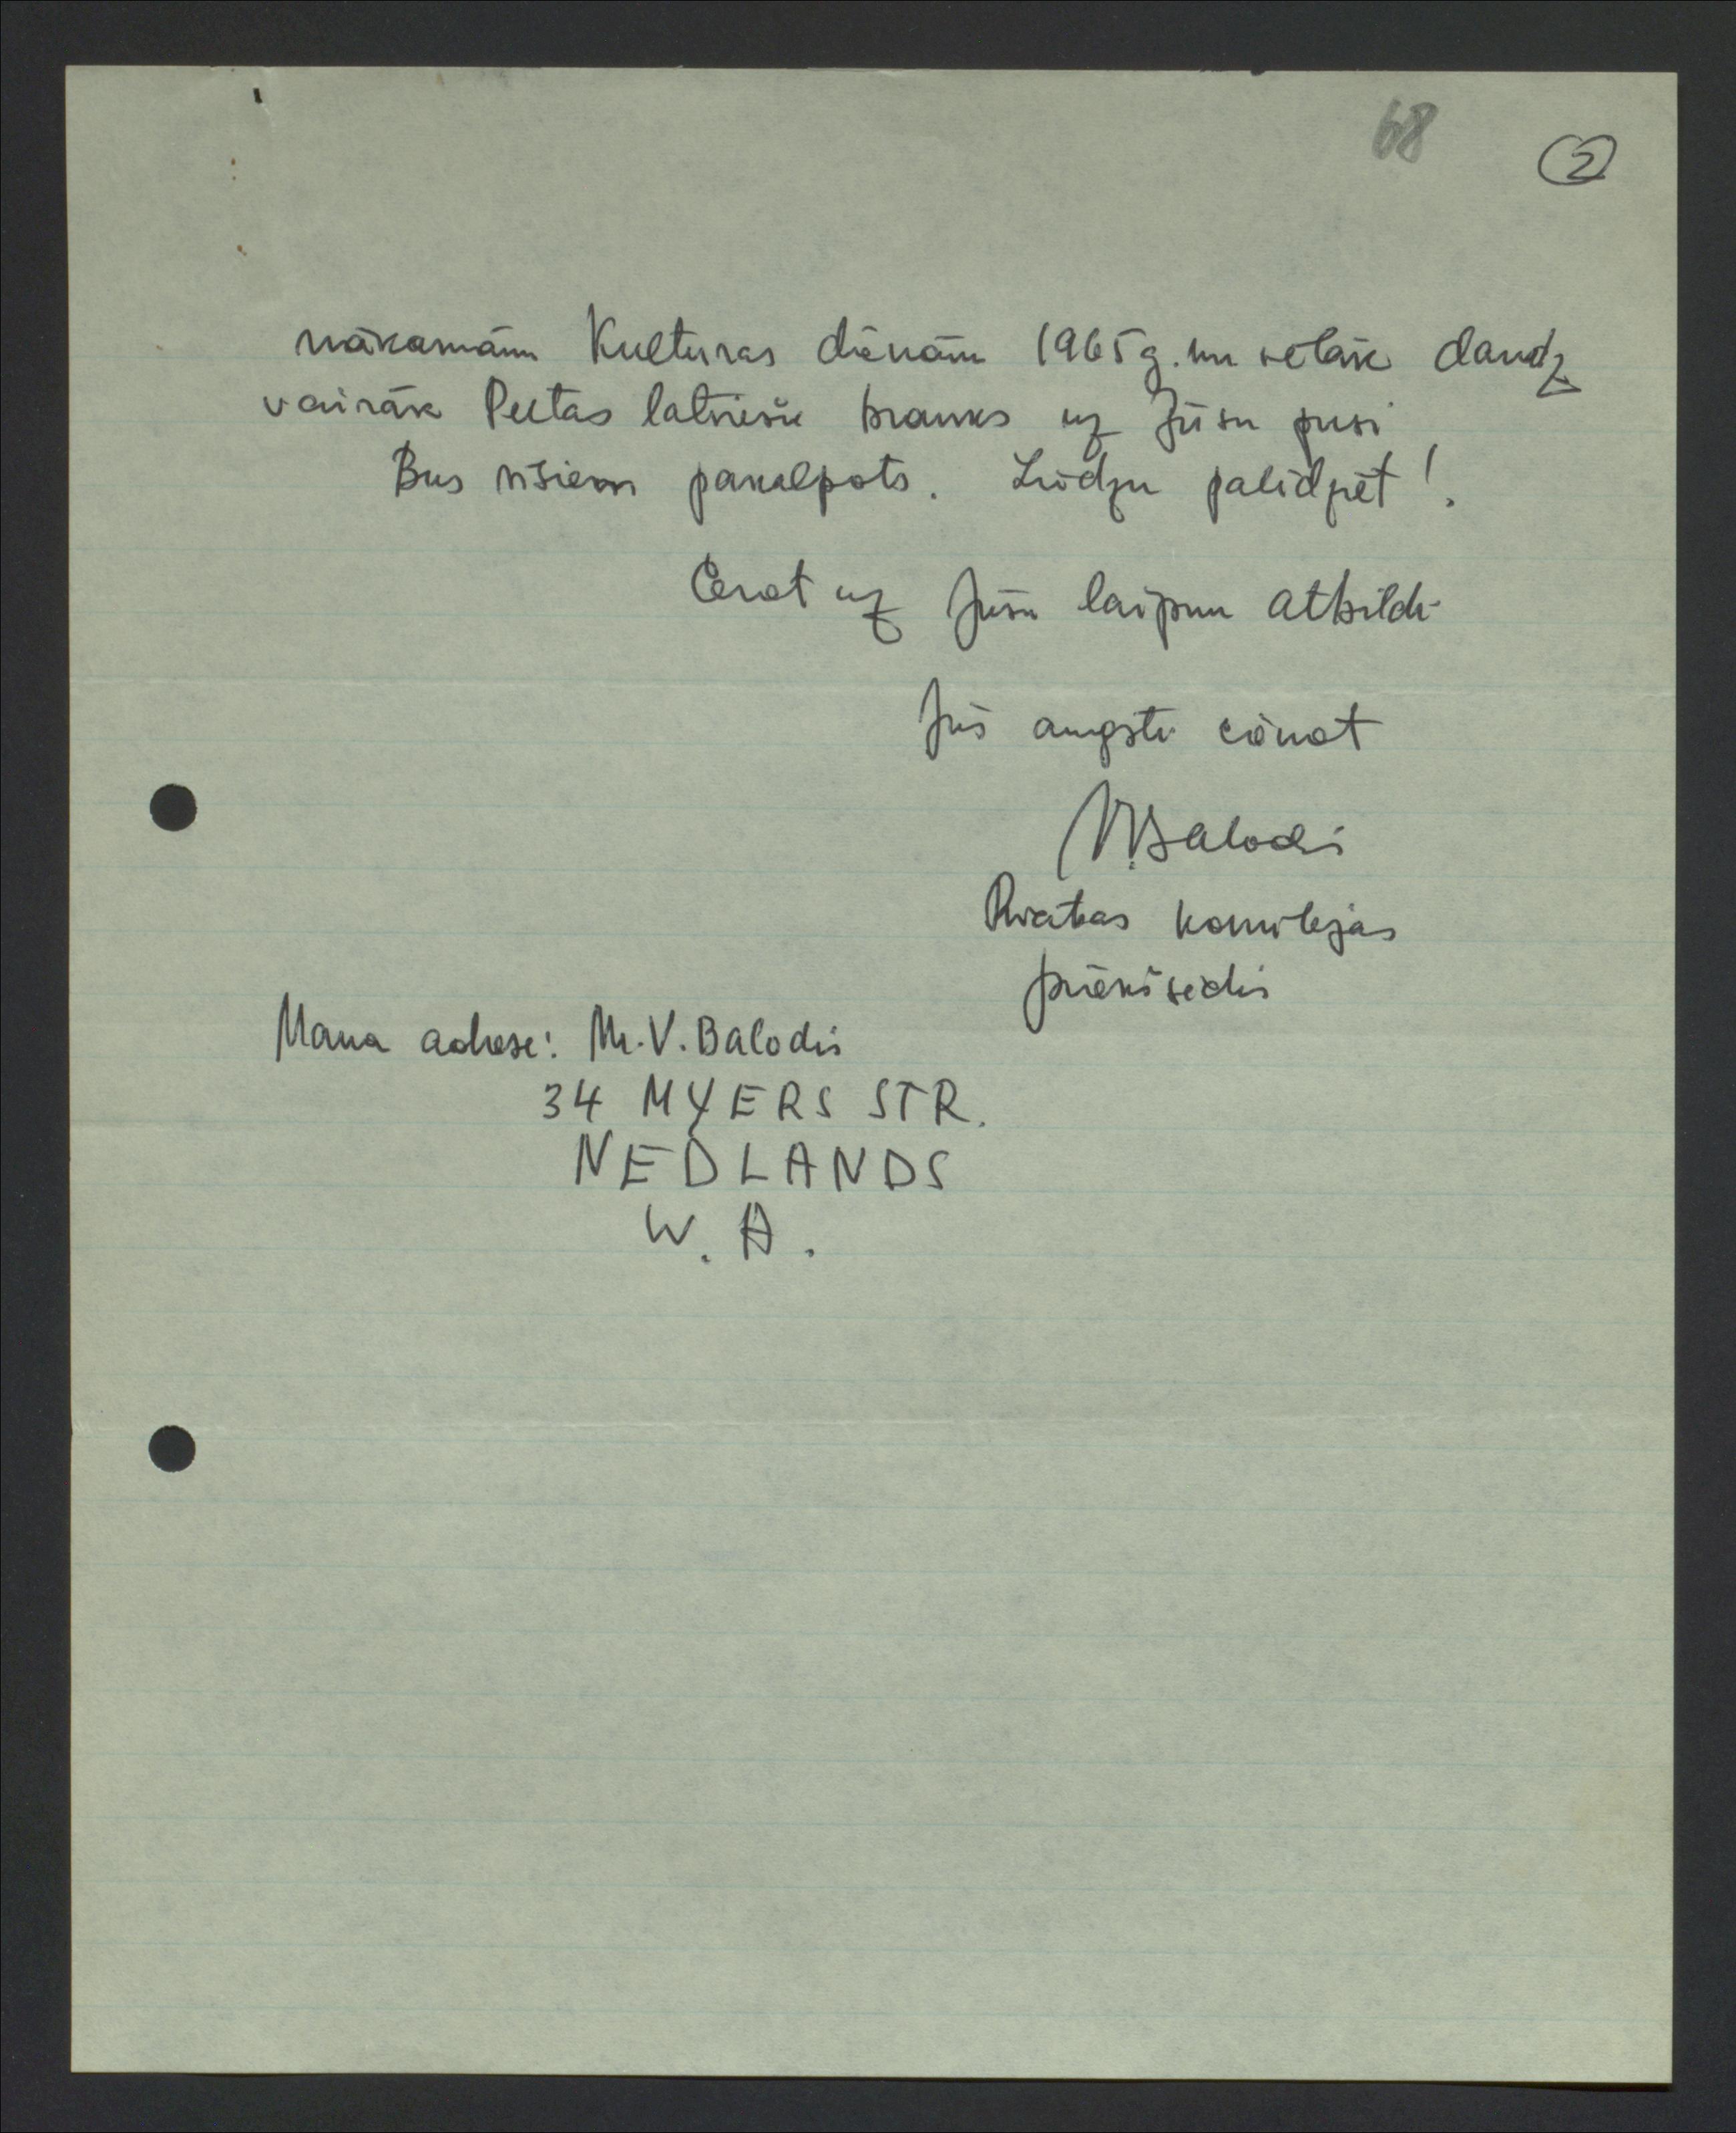 68
2
nākamām Kulturas dienām 1965g. un vēlāk daudz
vairāk Pertas latviešu brauks uz Jūsu pusi
Bus visiem pakalpots. Lūdzu palīdzēt!
Cerot uz Jūsu laipnu atbildi
Jūs augsti cienot
V.Balodis
Rīcības komitejas
priekšsēdis
Mana adrese: Mr. V. Balodis
34 MYERS STR.
NEDLANDS
W. A.